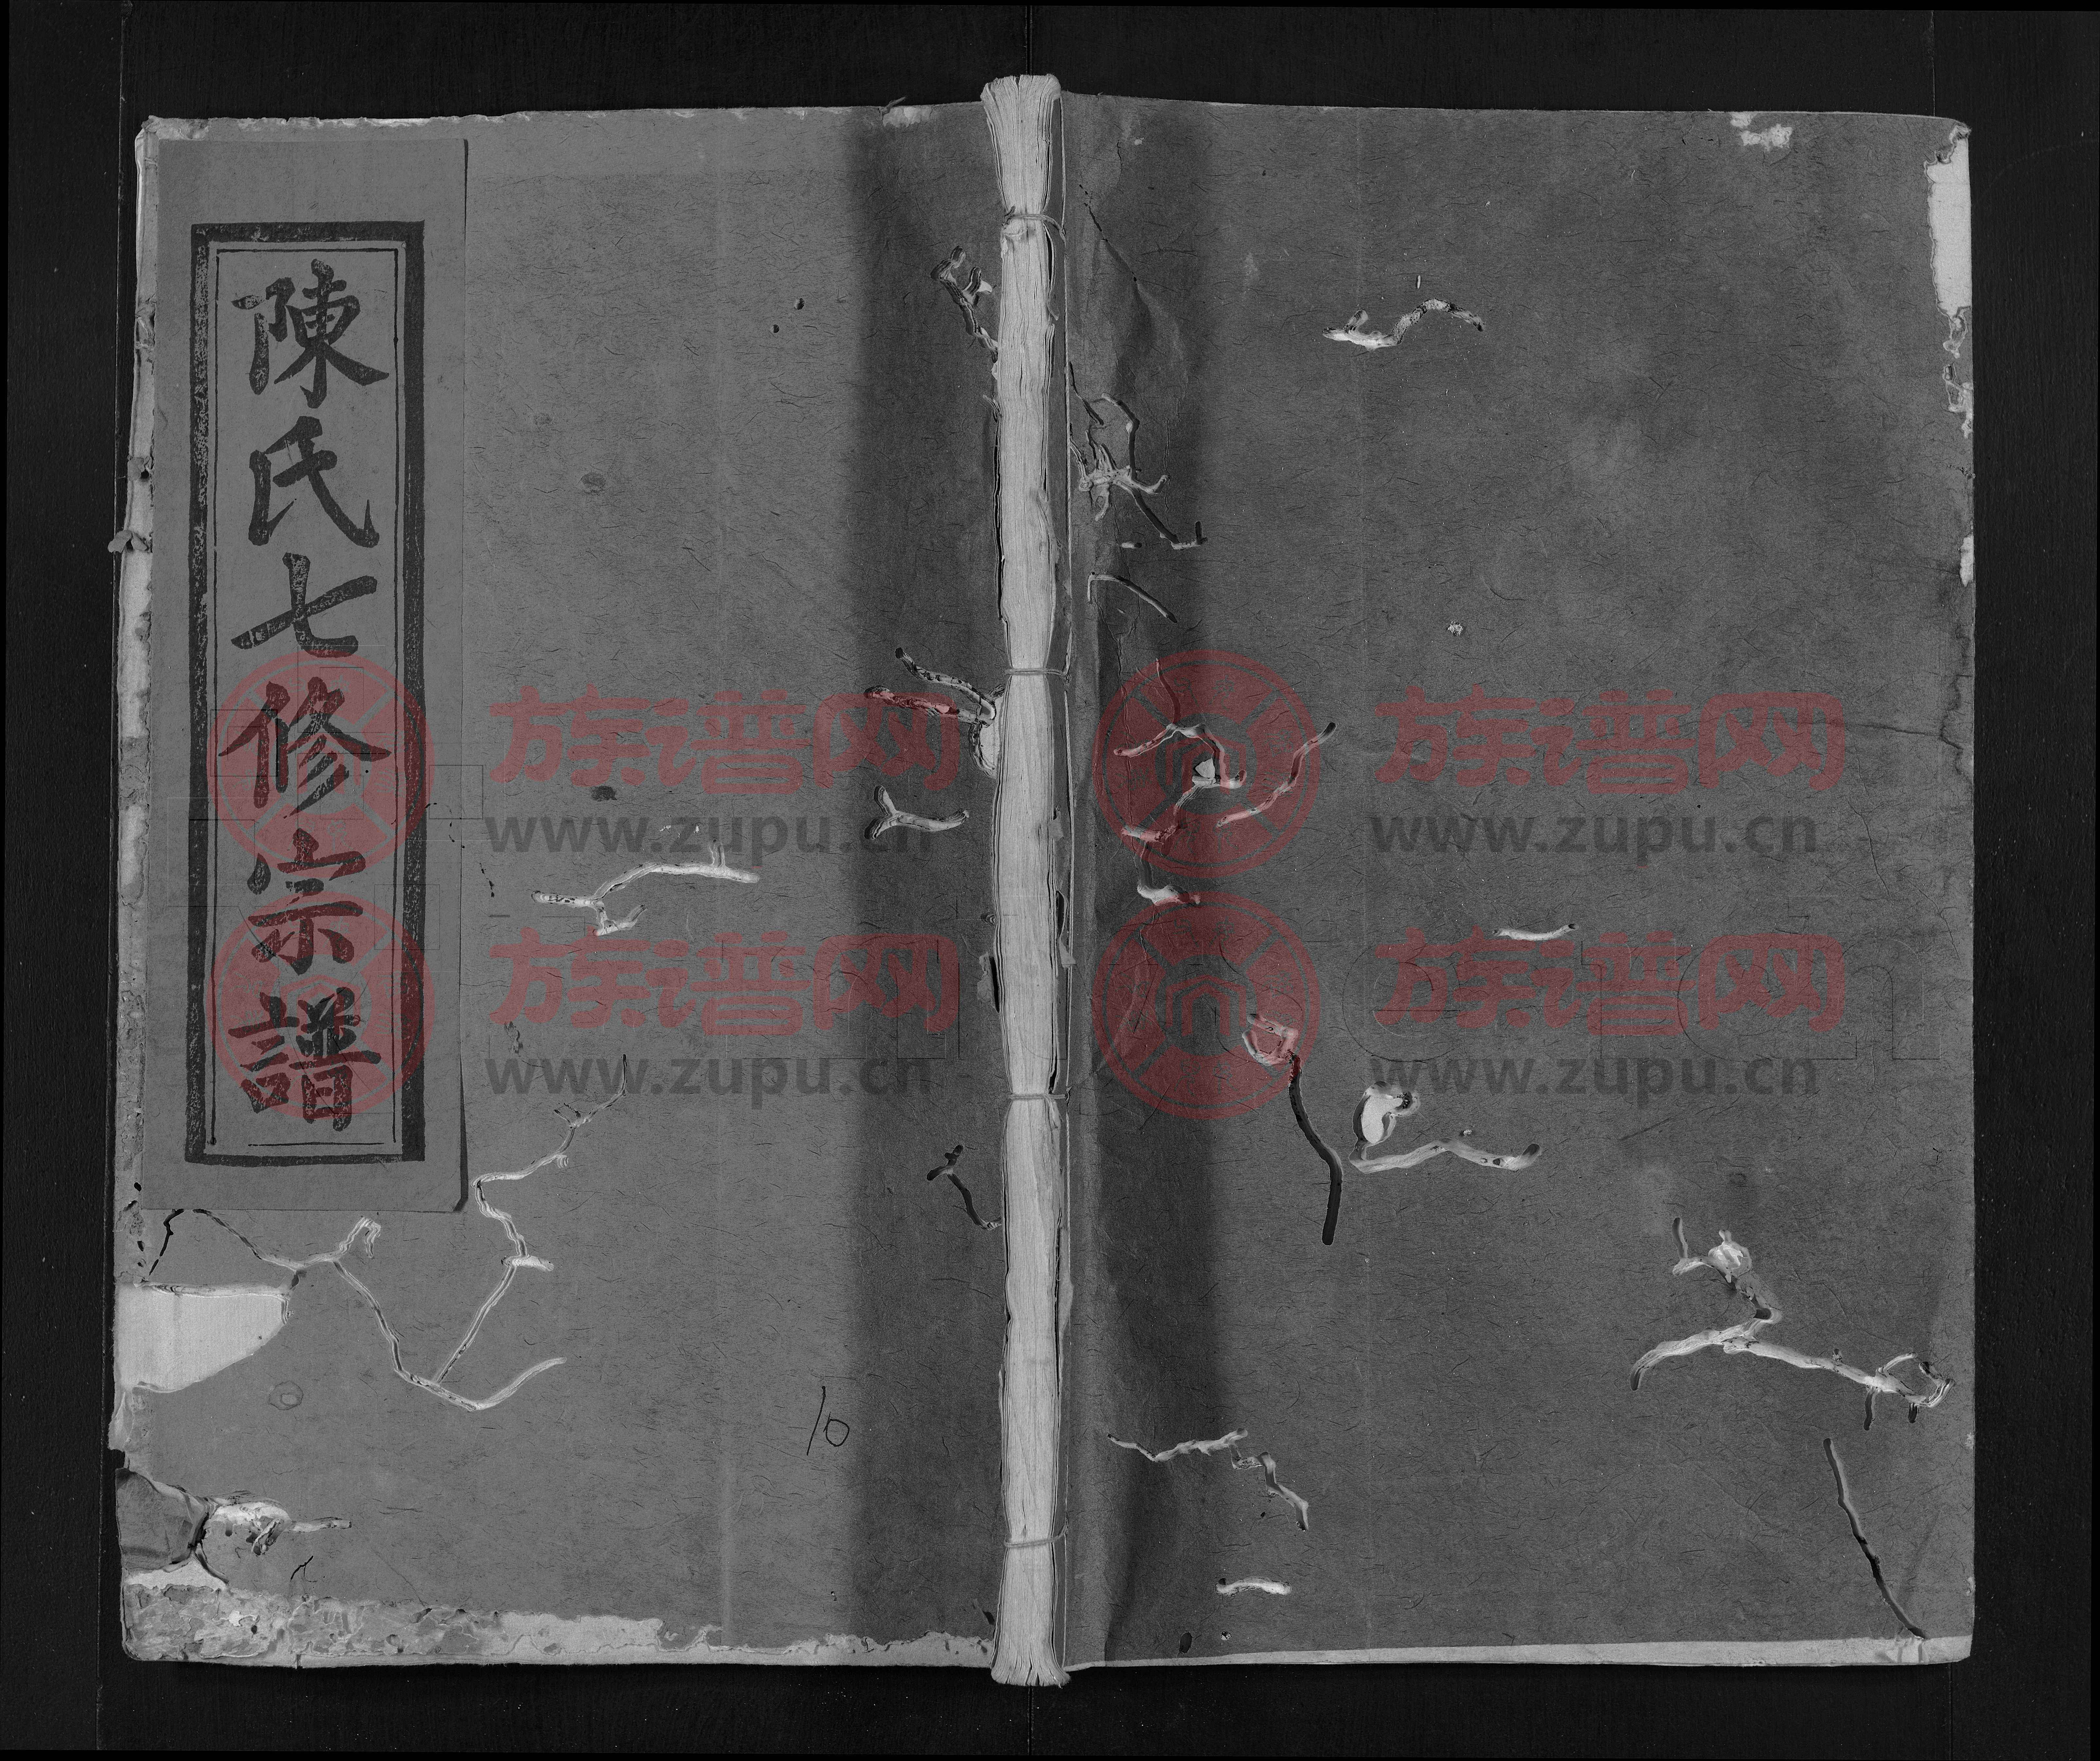 陳氏七修宗譜
10
族谱网
www.zupu.cn
族谱网
www.zupu.cn
族谱网
www.zupu.cn
族谱网
www.zupu.cn